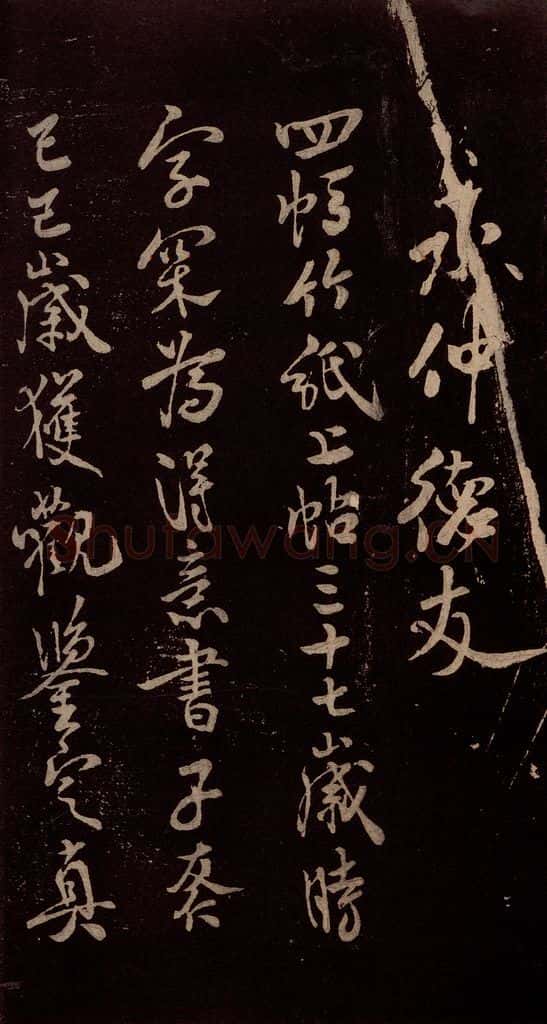 求仲 德友
四帧竹紙上帖三十七歲時
字冣為得意書子
己巳歲獲觀鑒定真
shufawang.cn